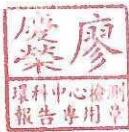 廖慶榮
環科中心檢測
報告專用章